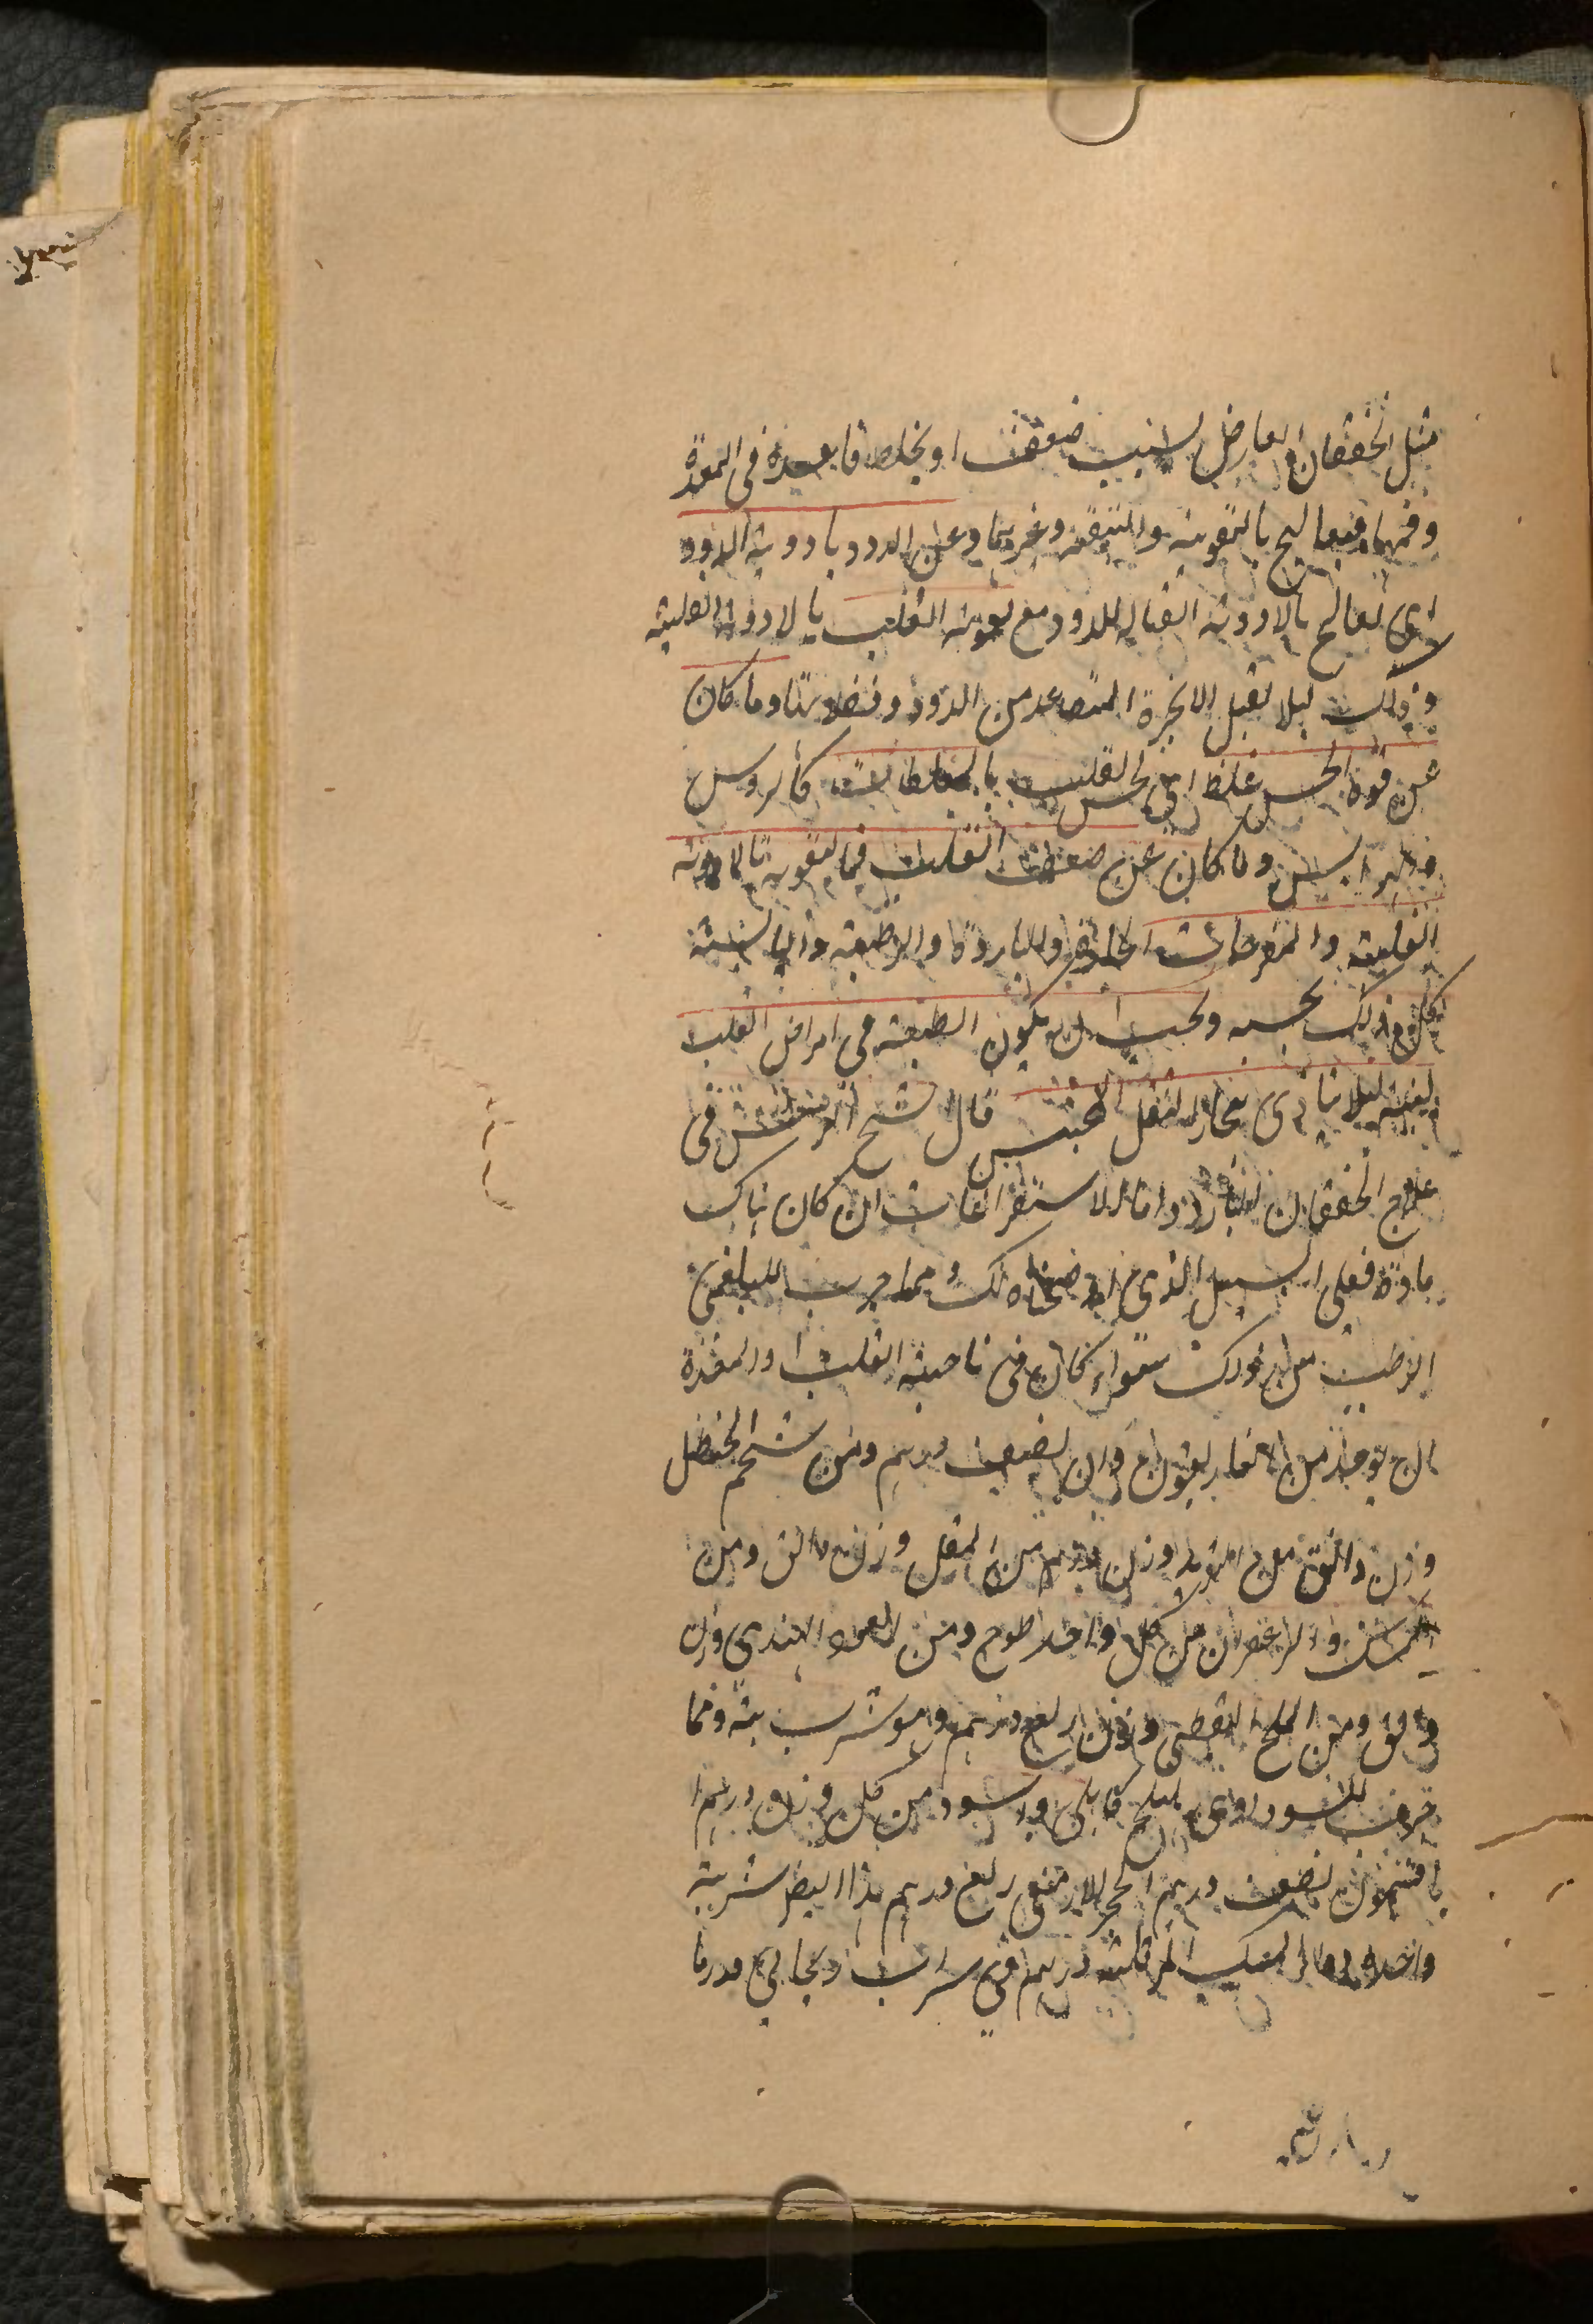 مثل الخفقان العارض لسبب ضعف او بخلط فاسد فى المعدة
وفمها فيعالج بالتقوية والتنقية وغيرهما وعن الدود بادوية الدود
اى يعالج بالادوية القتالة للدود مع تقوية القلب بالادوية القلبية
وذلك ليلا تقبل الابخرة المتصاعد من الدود وفضلاتها وما كان
عن قوة الحس غلظ اى لحس القلب بالمغلظات كالروس
والهرايس وما كان عن ضعف القلب فالتقوية بالادوية
القلبية والمفرحات الحارة والباردة والرطبة واليابسة
كل ذلك بحسبه ويجب ان يكون الطبيعة فى امراض القلب
لينة ليلا يتاذى ببخار الثفل المحتبس قال الشيخ الرئيس فى
علاج الخفقان البارد واما الاستفراغات ان كان هناك
مادة فعلى السبيل الذى اوضحناه لك ومما جرب للبلغمى
الرطب من ذلك سواء كان فى ناحية القلب او المعدة
ان يوخذ من الغاريقون وزن نصف درهم ومن شحم الحنظل
وزن دانق من التربد وزن درهم من المقل وزن دانق ومن
المسك والزعفران من كل واحد طسوج ومن العود الهندى وزن
دانق ومن الملح النفطى وزن ربع درهم وهو شربة ومما
جرب للسوداوى هليلج كابلى واسود من كل وزن درهم
افتيمون نصف درهم الحجر الارمنى ربع درهم هذا ايضا شربة
واحدة دواء المسك المر ثلثة دراهم فى شراب ريحانى قدر ما